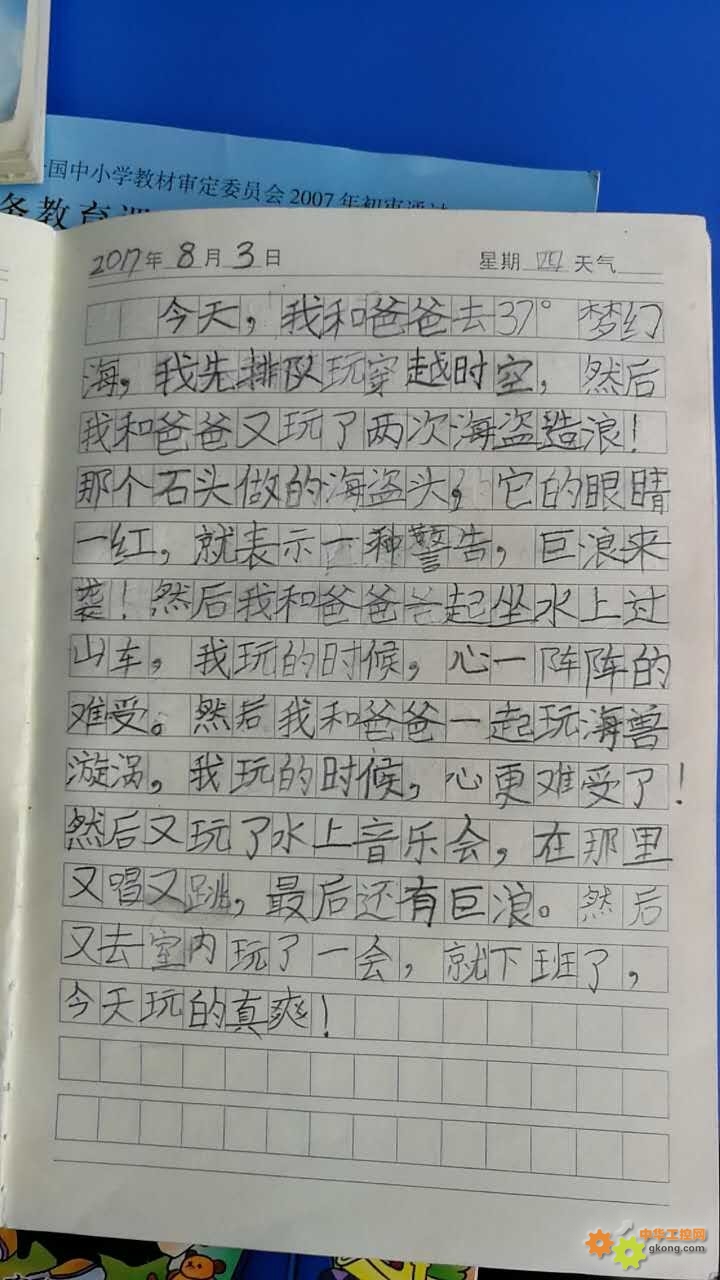 国中小学教材审定委员会2007年初审通过
务教育课
2017年 8月 3日 星期 四 天气
今天，我和爸爸去37°梦幻
海，我先排队玩穿越时空，然后
我和爸爸又玩了两次海盗造浪！
那个石头做的海盗头，它的眼睛
一红，就表示一种警告，巨浪来
袭！然后我和爸爸一起坐水上过
山车，我玩的时候，心一阵阵的
难受。然后我和爸爸一起玩海兽
漩涡，我玩的时候，心更难受了！
然后又玩了水上音乐会，在那里
又唱又跳，最后还有巨浪。然后
又去室内玩了一会，就下班了，
今天玩的真爽！
中华工控网
gkong.com